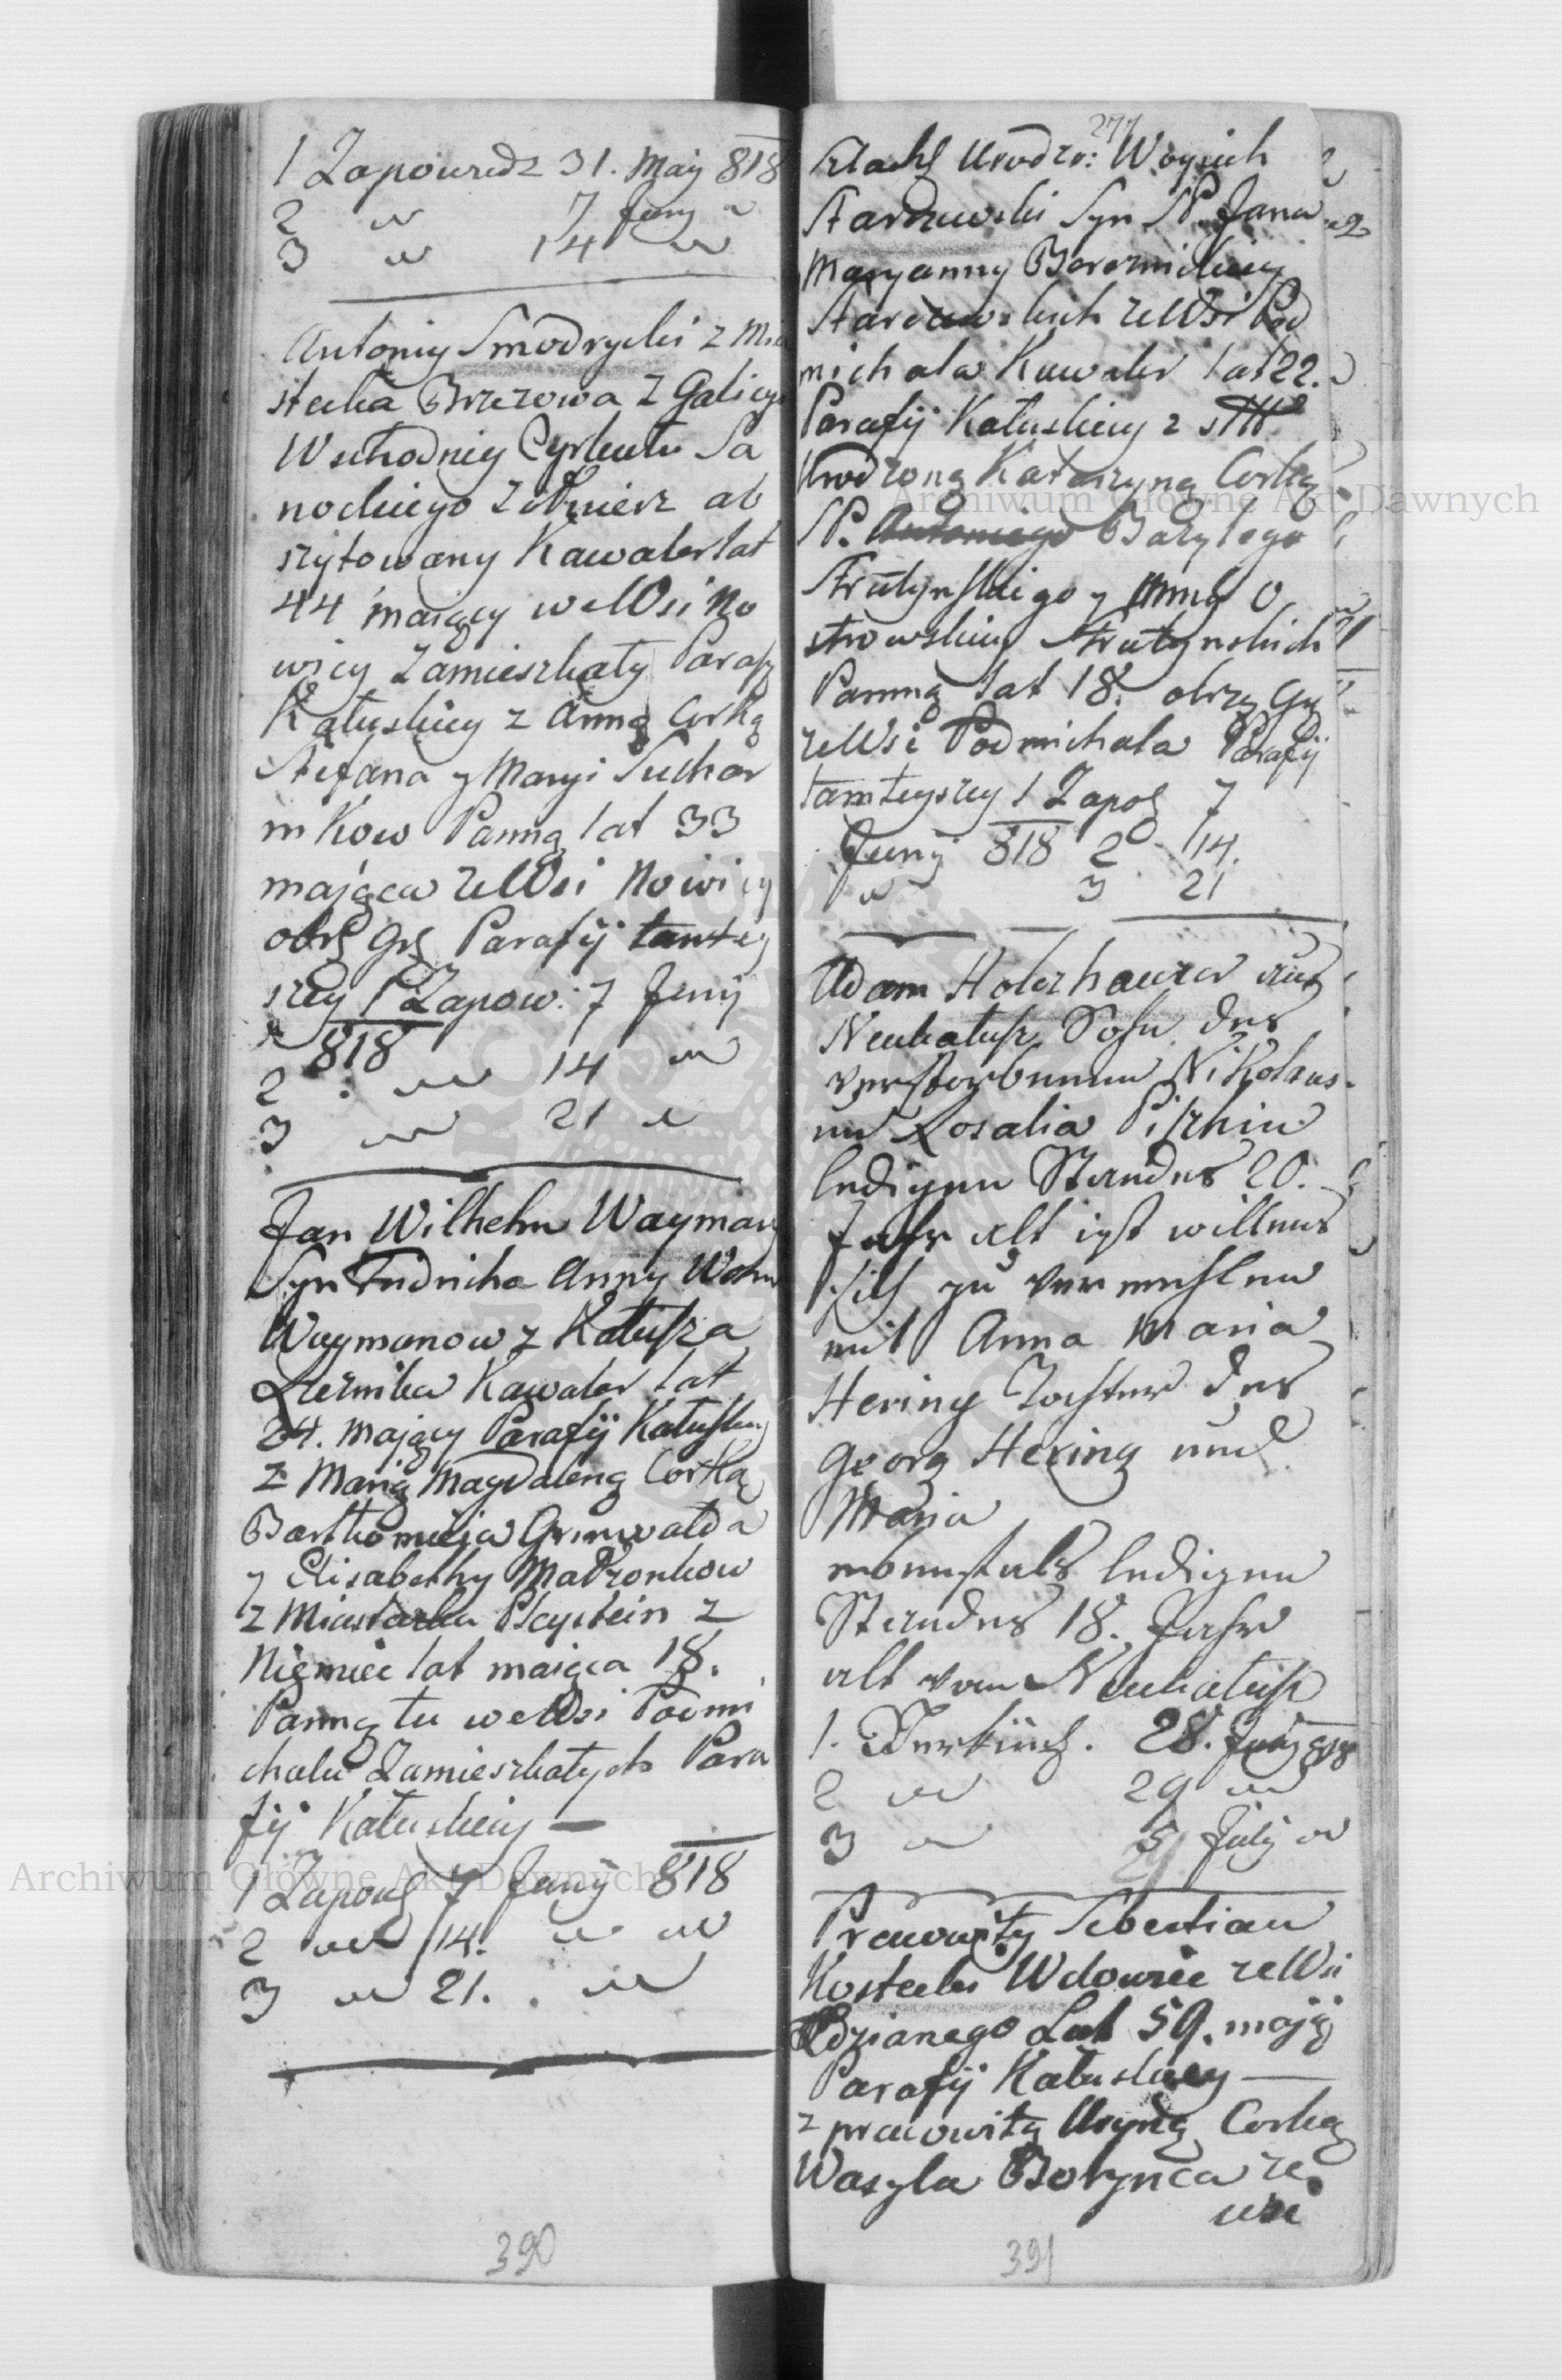 1 Zapowiedz 31. May 818
2 " 7 Juny "
3 " 14 "
Antoniy Smodrycki z Mia
stecka Brzezowa z Galicyi
Wschodniey Cyrkułu Sa
nockiego Zołnierz ab
szytowany Kawaler lat
44 maiący we Wsi No
wicy Zamieszkały Parafy
Kałuskiey z Anną Corką
Stefana y Maryi Suchar
nikow Panną lat 33
mająca ze Wsi Nowicy
obrz Grz Parafij tamtey
szey 1 Zapow: 7 Juny
818
2 " 14 "
3 " 21 "
Jan Wilhelm Wayman
Syn Fridricha Anny
Waymanow z Kałusza
Rzeznika Kawaler lat
24. mający Parafij Kałuskiey
z Marią Magdaleną Corką
Bartłomieja Grunwalda
y Elisabethy Małżonkow
z Miasteczka Playstein z
Niemiec lat maiąca 18.
Panną tu we Wsi Podmi
chalu Zamieszkałych Para
fij Kałuskiey —
1 Zapow 7 Juny 818
2 " 14. " "
3 " 21. "
390
277
Szlach Urodzo: Woyciech
Starzewski Syn SP. Jana
Maryanny
Starzewskich ze Wsi Pod
michala Kawaler lat 22.
Parafij Kałuskiey z
Urodzoną Katarzyną Corką
SP. Antoniego Bazylego
Strutynskiego y Anny O
strowskiey Strutynskich
Panną lat 18. obrzą Grz
ze Wsi Podmichala Parafij
tamteyszey 1 Zapo 7
Juny 818 2 14.
" 3 21
Adam Holerhauer aus
Neukalusz Sohn des
verstorbenen Nikolaus
und Rosalia
ledigen Standes 20.
Jahr alt ist willens
sich zu vermehlen
mit Anna Maria
Hering Tochter des
Georg Hering und
Maria
ebenfals ledigen
Standes 18. Jahr
alt von Neukalusz
1. Verkünd. 28. Juny 818
2 " 29 "
3 " 5 July "
Pracowity Sebestian
Kostecki Wdowiec ze Wsi
Zdzianego Lat 59. mają
Parafij Kałuskiey —
z pracowitą Corką
Wasyla Bolynca ze
wsi
391
Archiwum Główne Akt Dawnych
Archiwum Główne Akt Dawnych